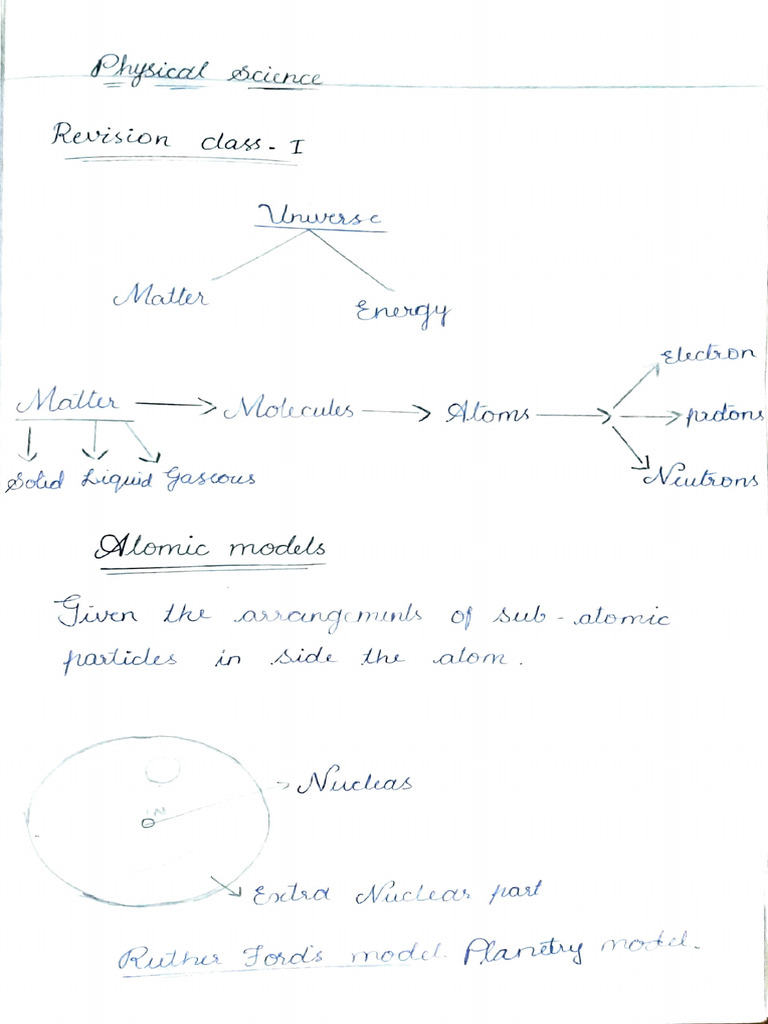 Physical Science
Revision class - I
Universe
Matter
Energy
Electron
Matter Molecules Atoms protons
Solid Liquid Gaseous
Neutrons
Atomic models
Given the arrangements of sub-atomic
particles in side the atom.
N
Nucleas
Extra Nuclear part
Ruther Ford's model. Planetry model.